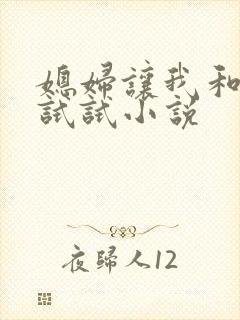 媳妇讓我和
試試小説
夜歸人12